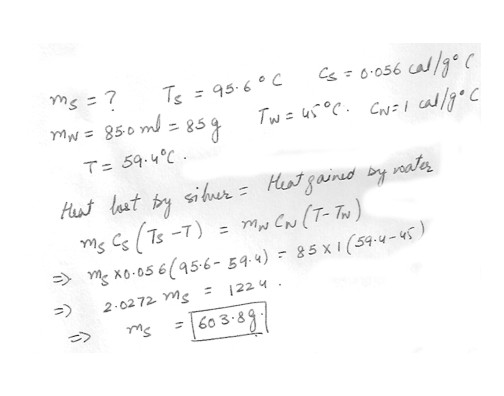 ms = ? Ts = 95.6°C Cs = 0.056 cal/g°C
mw = 85.0 ml = 85g Tw = 45°C. Cw = 1 cal/g°C
T = 59.4°C.
Heat lost by silver = Heat gained by water
ms Cs (Ts - T) = mw Cw (T - Tw)
=> ms x 0.056 (95.6 - 59.4) = 85 x 1 (59.4 - 45)
=> 2.0272 ms = 1224.
=> ms = 603.8g.